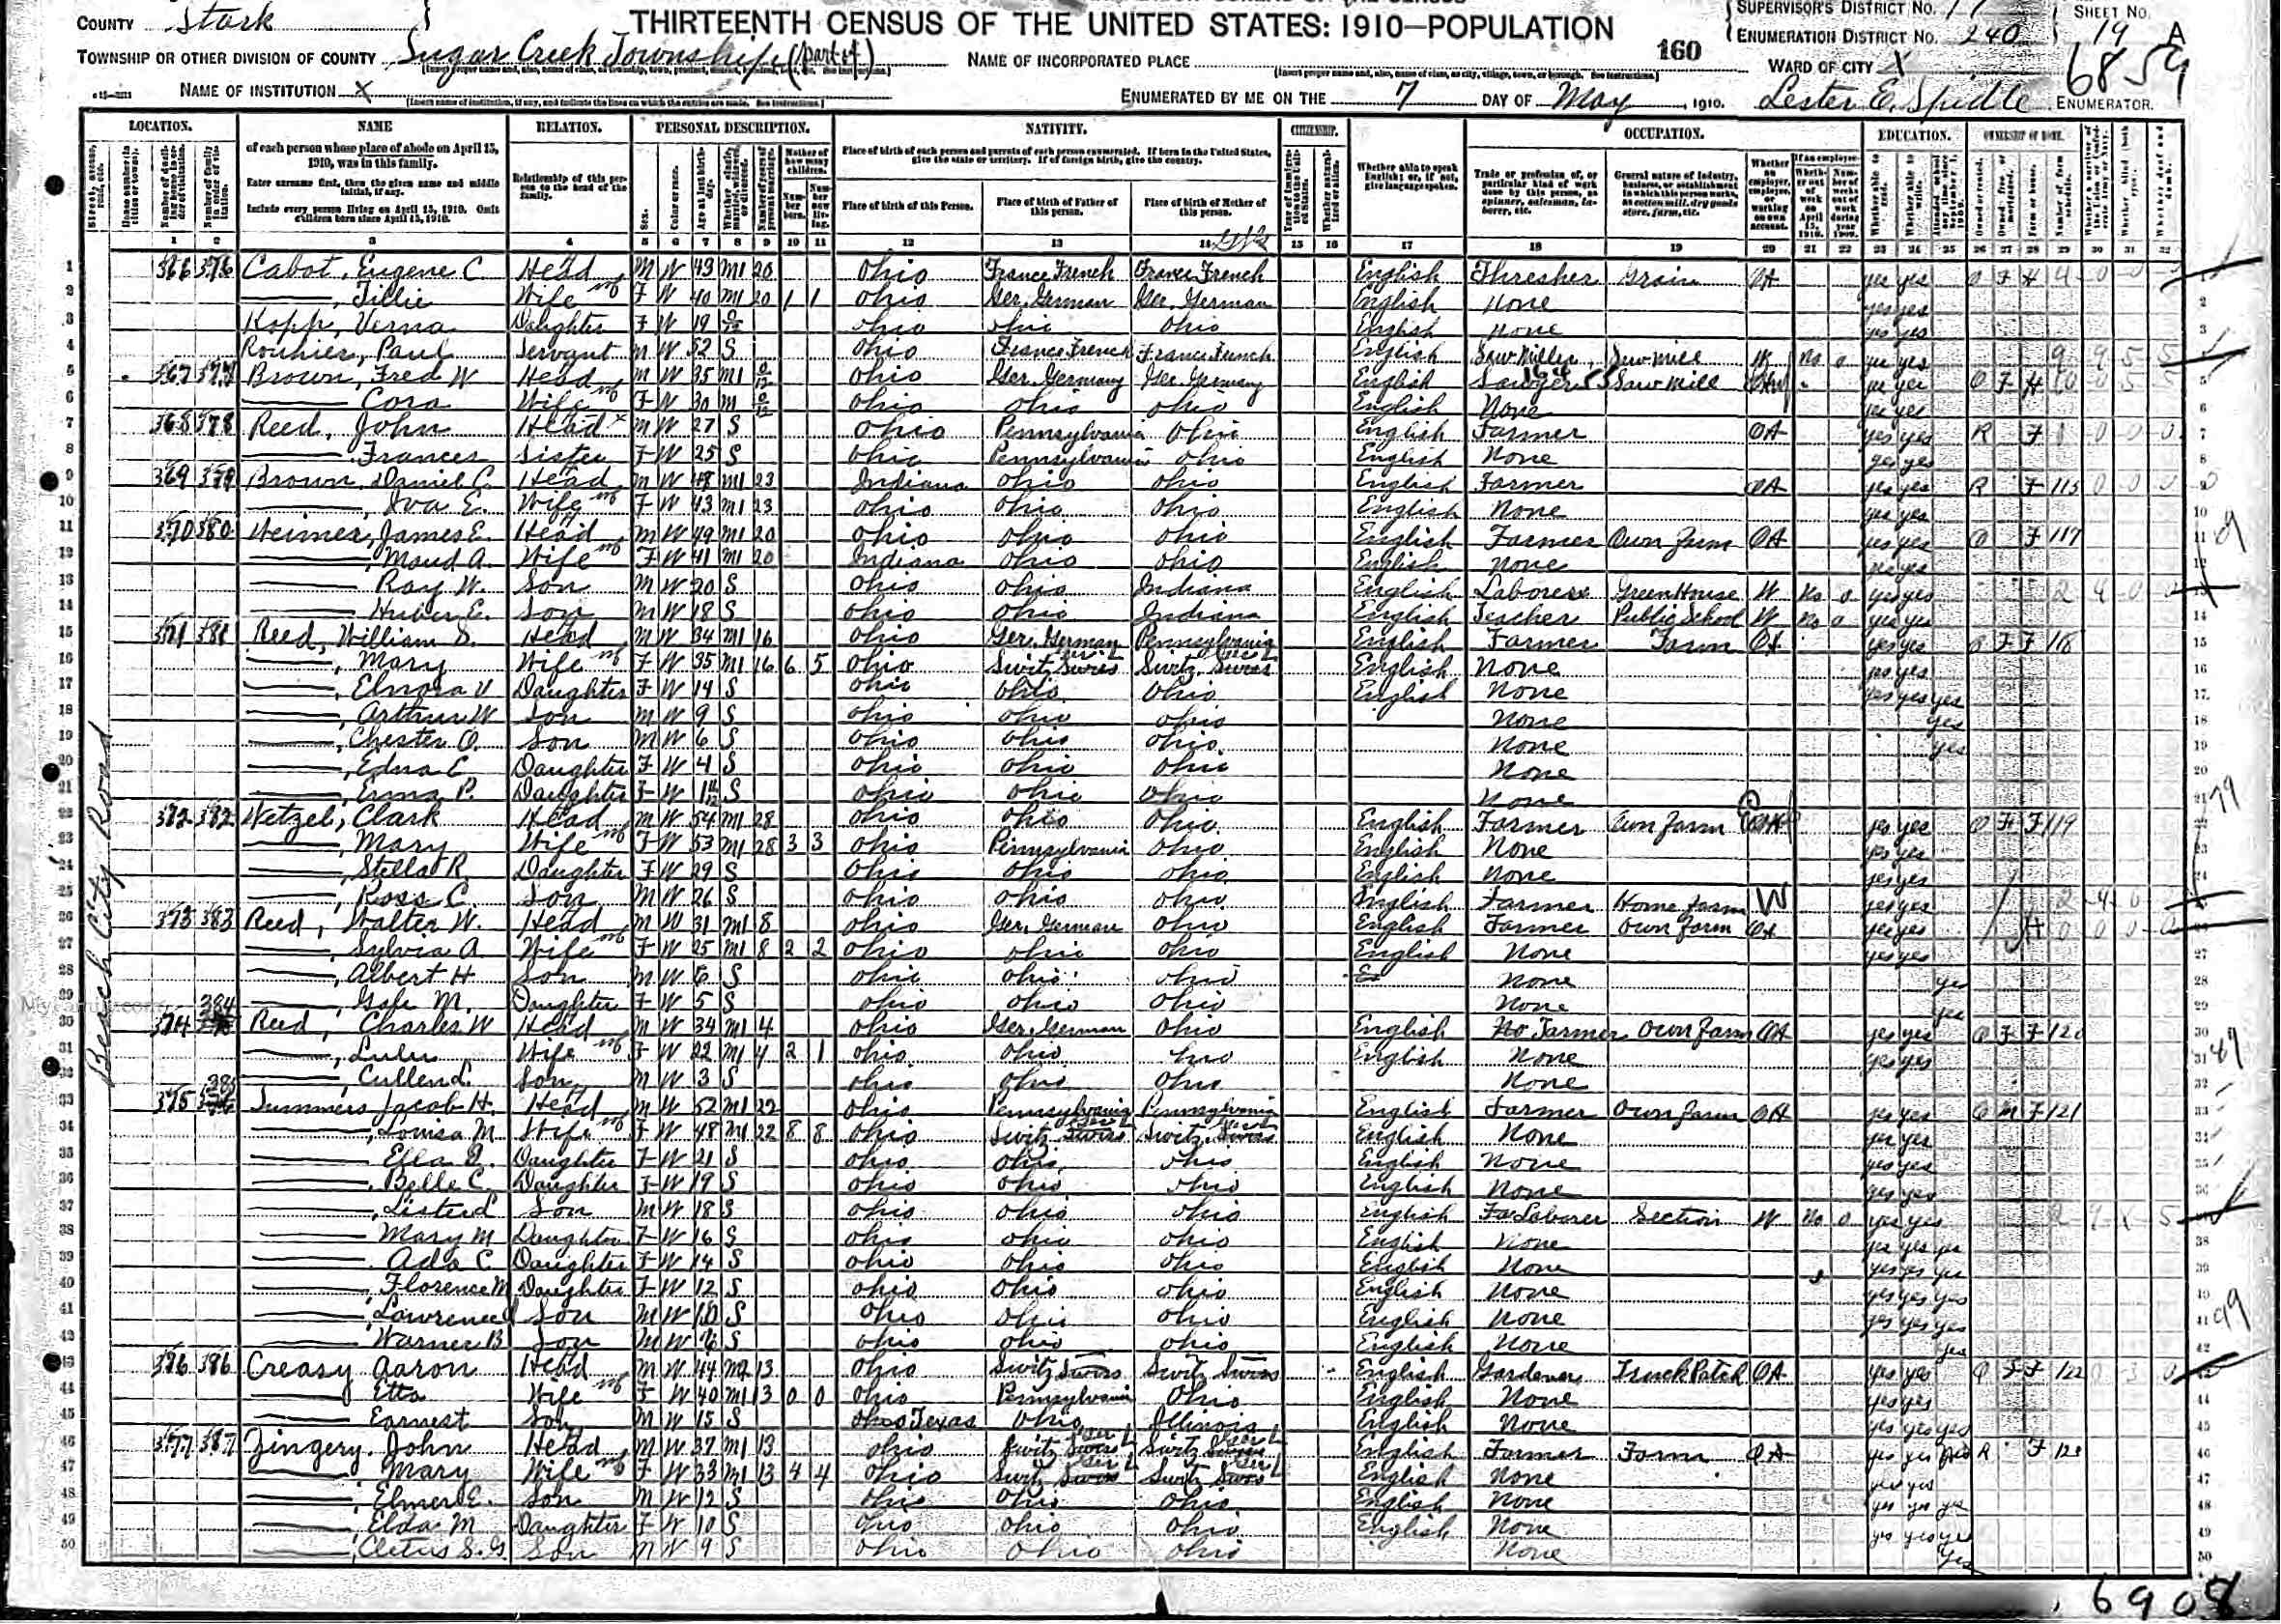 COUNTY Stark
THIRTEENTH CENSUS OF THE UNITED STATES: 1910—POPULATION
SUPERVISOR'S DISTRICT NO.
SHEET NO.
ENUMERATION DISTRICT NO. 240
19 A
TOWNSHIP OR OTHER DIVISION OF COUNTY Sugar Creek Township (part of)
NAME OF INCORPORATED PLACE
160
WARD OF CITY X
6859
NAME OF INSTITUTION X
ENUMERATED BY ME ON THE 7 DAY OF May, 1910. Lester E. Spidle, ENUMERATOR.
LOCATION. NAME RELATION. PERSONAL DESCRIPTION. NATIVITY. CITIZENSHIP. OCCUPATION. EDUCATION. OWNERSHIP OF HOME.
of each person whose place of abode on April 15, 1910, was in this family.
Enter surname first, then the given name and middle initial, if any.
Include every person living on April 15, 1910. Omit children born since April 15, 1910.
Relationship of this person to the head of the family.
Place of birth of each person and parents of each person enumerated. If born in the United States, give the state or territory. If of foreign birth, give the country.
Place of birth of this Person. Place of birth of Father of this person. Place of birth of Mother of this person.
Whether able to speak English; or, if not, give language spoken.
1 2 3 4 5 6 7 8 9 10 11 12 13 14 15 16 17 18 19 20 21 22 23 24 25 26 27 28 29 30 31 32
1 366 376 Cabot, Eugene C Head M W 43 M1 20 Ohio France French France French English Thresher Grain OA yes yes O F H
2 ——, Tillie Wife F W 40 M1 20 1 1 Ohio Ger. German Ger. German English None yes yes
3 Kopp, Verna Daughter F W 19 Ohio Ohio Ohio English None yes yes
4 Rouhier, Paul Servant M W 52 S Ohio France French France French English Saw Miller Saw mill W No 0 yes yes
5 367 377 Brown, Fred W Head M W 35 M1 0/12 Ohio Ger. Germany Ger. Germany English Sawyer Saw mill yes yes O F H
6 —— Cora Wife F W 30 M 0/12 Ohio Ohio Ohio English None yes yes
7 368 378 Reed, John Head M W 27 S Ohio Pennsylvania Ohio English Farmer OA yes yes R F
8 —— Frances Sister F W 25 S Ohio Pennsylvania Ohio English None yes yes
9 369 379 Brown, Daniel C. Head M W 48 M1 23 Indiana Ohio Ohio English Farmer OA yes yes R F 115
10 ——, Iva E. Wife F W 43 M1 23 Ohio Ohio Ohio English None yes yes
11 370 380 Weimer, James E. Head M W 49 M1 20 Ohio Ohio Ohio English Farmer Own Farm OA yes yes O F 117
12 —— Maud A. Wife F W 41 M1 20 Indiana Ohio Ohio English None yes yes
13 —— Ray W. Son M W 20 S Ohio Ohio Indiana English Laborer Green House W No 0 yes yes
14 —— Huber E. Son M W 18 S Ohio Ohio Indiana English Teacher Public School W No 0 yes yes
15 371 381 Reed, William S. Head M W 34 M1 16 Ohio Ger. German Pennsylvania English Farmer Farm OA yes yes O F F 118
16 ——, Mary Wife F W 35 M1 16 6 5 Ohio Switz Swiss Switz. Swiss English None yes yes
17 ——, Elnora V Daughter F W 14 S Ohio Ohio Ohio English None yes yes yes
18 ——, Arthur W Son M W 9 S Ohio Ohio Ohio None yes
19 ——, Chester O. Son M W 6 S Ohio Ohio Ohio None yes
20 ——, Edna C Daughter F W 4 S Ohio Ohio Ohio None
21 ——, Erma P. Daughter F W S Ohio Ohio Ohio None
22 372 382 Wetzel, Clark Head M W 54 M1 28 Ohio Ohio Ohio English Farmer Own Farm yes yes O F F 119
23 ——, Mary Wife F W 53 M1 28 3 3 Ohio Pennsylvania Ohio English None yes yes
24 ——, Stella R. Daughter F W 29 S Ohio Ohio Ohio English None yes yes
25 ——, Ross C. Son M W 26 S Ohio Ohio Ohio English Farmer Home Farm W yes yes
26 373 383 Reed, Walter W. Head M W 31 M1 8 Ohio Ger. German Ohio English Farmer Own Farm OA yes yes H
27 ——, Sylvia A. Wife F W 25 M1 8 2 2 Ohio Ohio Ohio English None yes yes
28 ——, Albert H Son M W 6 S Ohio Ohio Ohio None yes
29 ——, M. Daughter F W 5 S Ohio Ohio Ohio None yes
30 374 384 Reed, Charles W Head M W 34 M1 4 Ohio Ger. German Ohio English Farmer Own Farm OA yes yes O F F 120
31 ——, Lulu Wife F W 22 M1 4 2 1 Ohio Ohio Ohio English None yes yes
32 ——, Cullen L. Son M W 3 S Ohio Ohio Ohio None
33 375 385 Summers Jacob H. Head M W 52 M1 22 Ohio Pennsylvania Pennsylvania English Farmer Own Farm OA yes yes O M F 121
34 ——, Louisa M Wife F W 48 M1 22 8 8 Ohio Switz Swiss Switz. Swiss English None yes yes
35 —— Ella Daughter F W 21 S Ohio Ohio Ohio English None yes yes
36 ——, Belle C. Daughter F W 19 S Ohio Ohio Ohio English None yes yes
37 ——, Lister L Son M W 18 S Ohio Ohio Ohio English Laborer Section W No 0 yes yes
38 —— Mary M Daughter F W 16 S Ohio Ohio Ohio English None yes yes yes
39 —— Ada C Daughter F W 14 S Ohio Ohio Ohio English None yes yes yes
40 ——, Florence M Daughter F W 12 S Ohio Ohio Ohio English None yes yes yes
41 ——, Lawrence Son M W 10 S Ohio Ohio Ohio English None yes yes yes
42 —— Warner B Son M W S Ohio Ohio Ohio English None yes
43 376 386 Creasy Aaron Head M W 44 M2 13 Ohio Switz Swiss Switz Swiss English Gardener Truck Patch OA yes yes O F F 122
44 —— Etta Wife F W 40 M1 13 0 0 Ohio Pennsylvania Ohio English None yes yes
45 —— Earnest Son M W 15 S Texas Ohio Illinois English None yes yes yes
46 377 387 Zingery, John Head M W 37 M1 13 Ohio Switz Swiss Switz Swiss English Farmer Farm OA yes yes R F
47 —— Mary Wife F W 33 M1 13 4 4 Ohio Switz Swiss Switz Swiss English None yes yes
48 ——, Elmer E. Son M W 12 S Ohio Ohio Ohio English None yes yes yes
49 ——, Elda M Daughter F W 10 S Ohio Ohio Ohio English None yes yes yes
50 ——, Cletus S. Son M W 9 S Ohio Ohio Ohio None yes
Beach City Road
6908